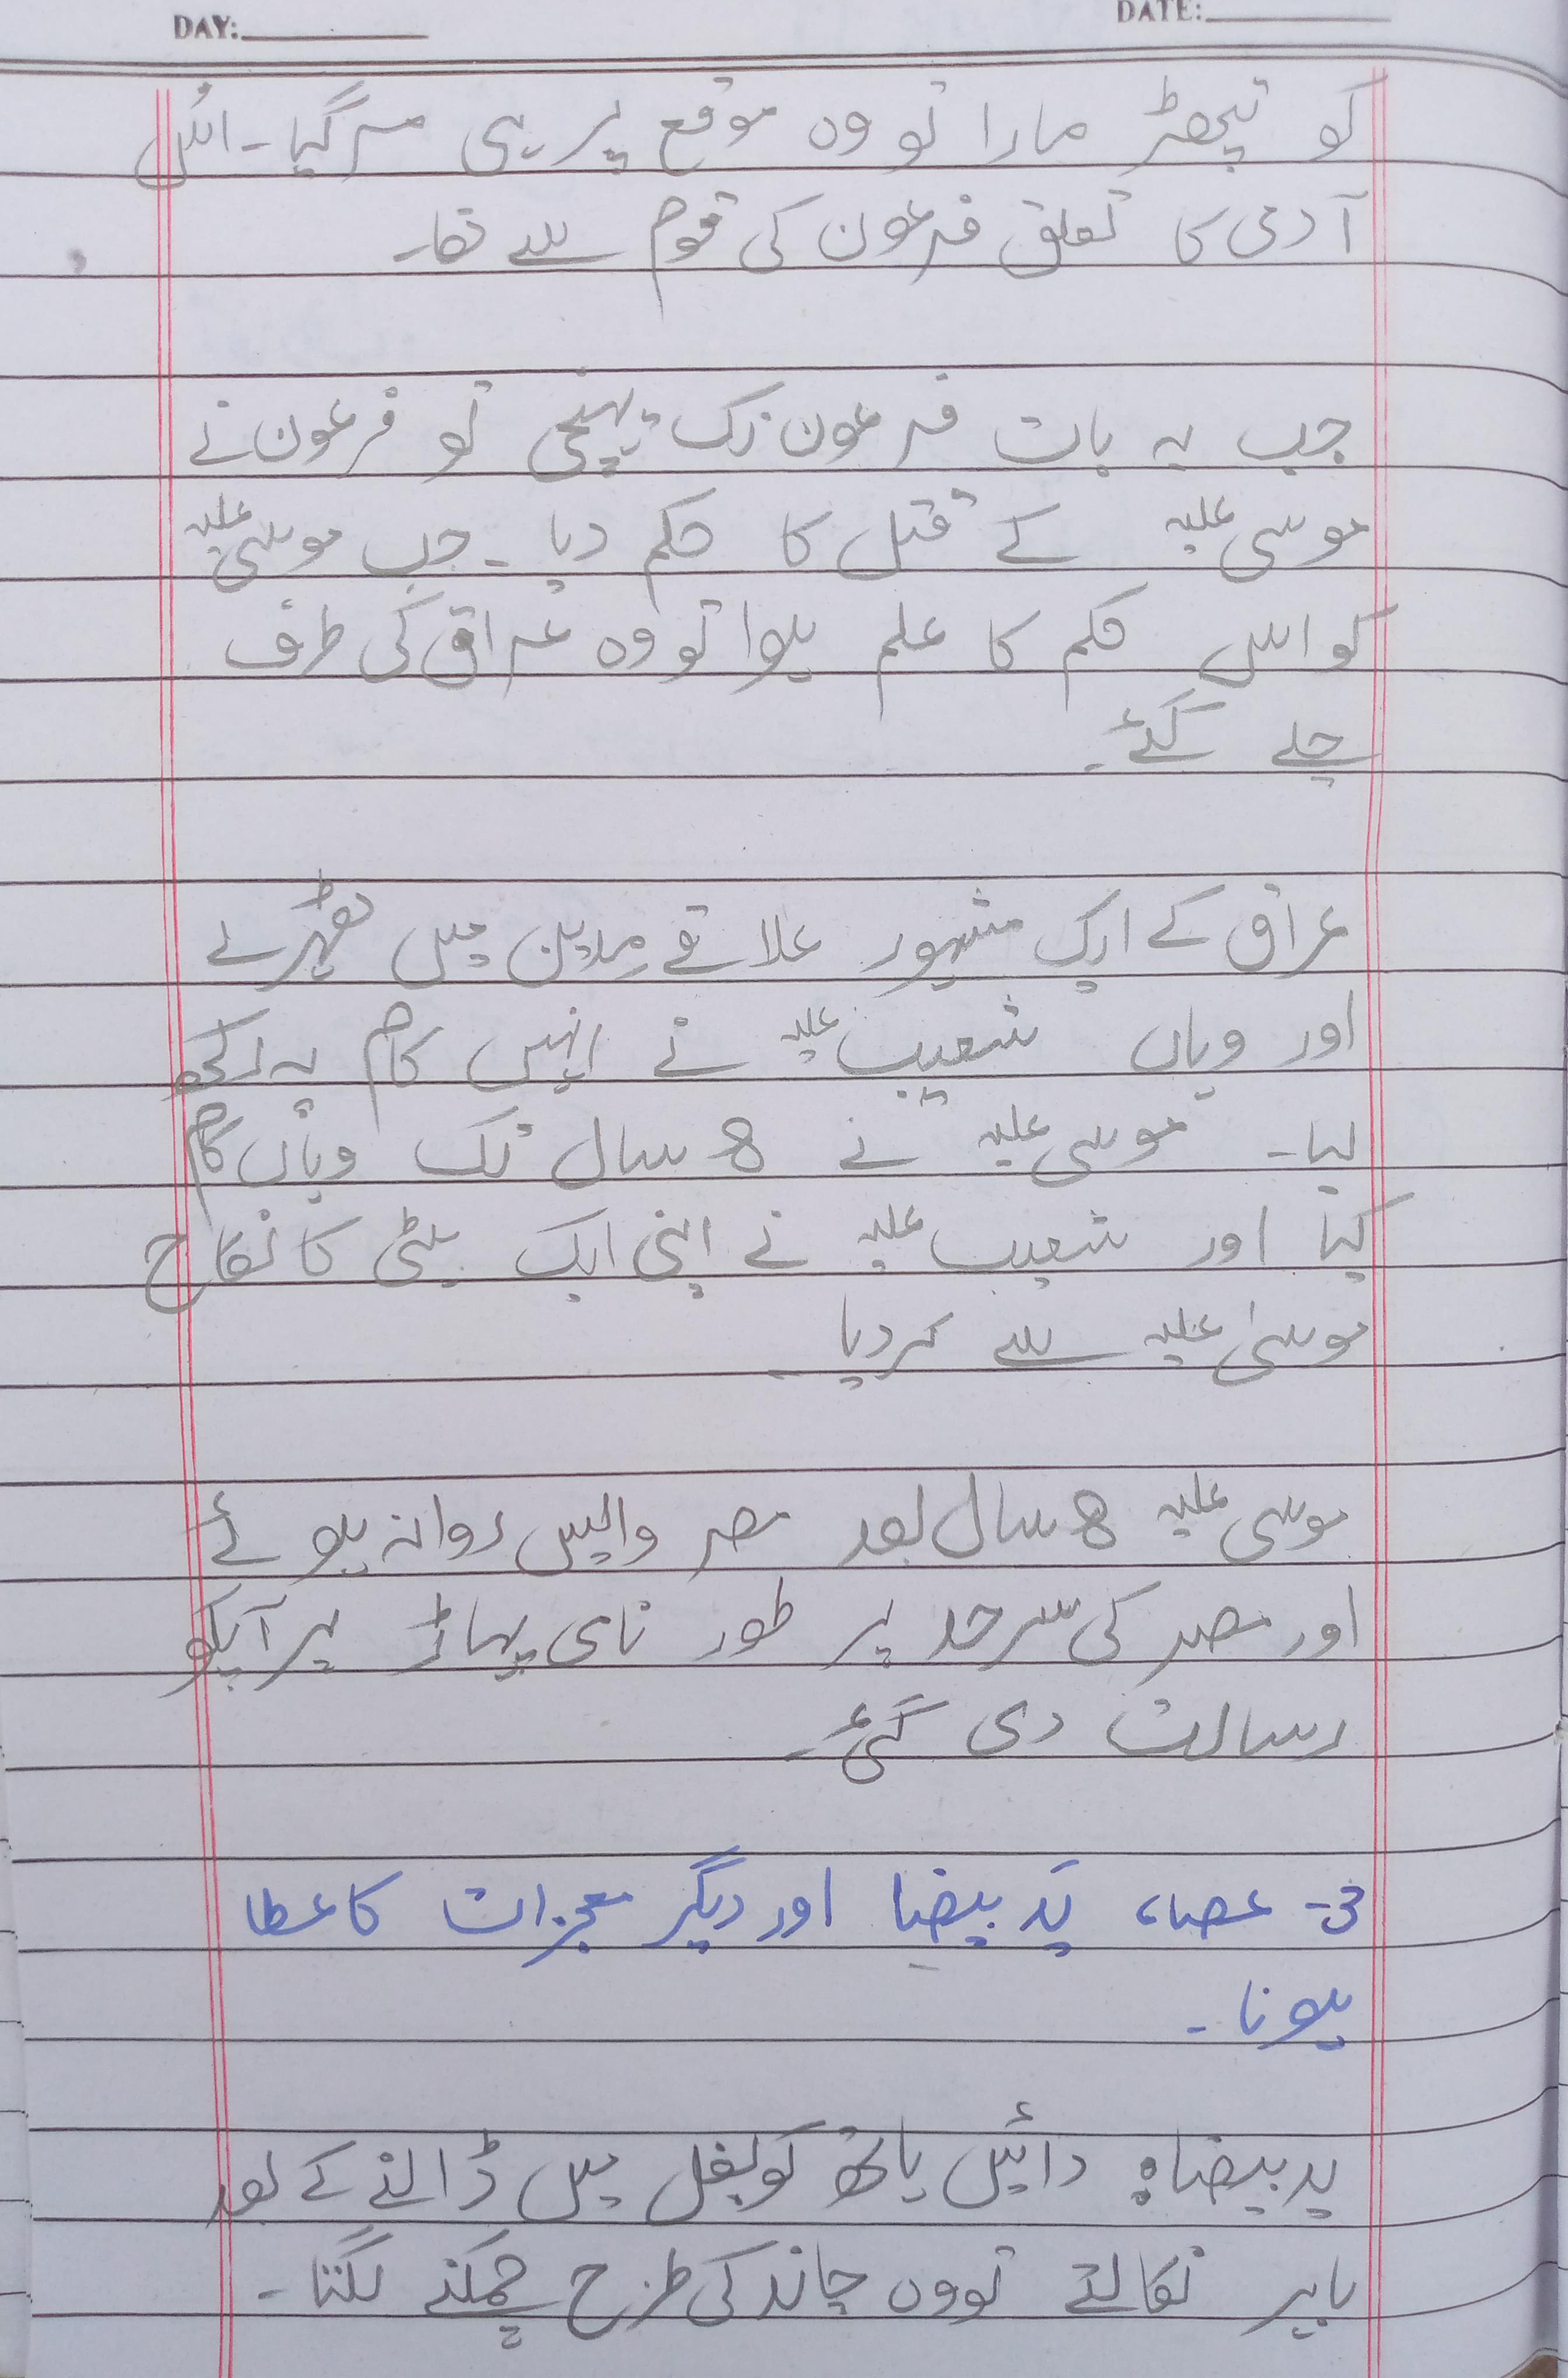 DAY:
DATE:
کو تپھڑ مارا تو وہ موقع پر ہی مر گیا۔ اُس
آدمی کا تعلق فرعون کی قوم سے تھا۔
جب یہ بات فرعون تک پہنچی تو فرعون نے
موسی علیہ کے قتل کا حکم دیا۔ جب موسی علیہ
کو اس حکم کا علم ہوا تو وہ عراق کی طرف
چلے گئے۔
عراق کے ایک مشہور علاقے مدین میں ٹھہرے
اور وہاں شعیب علیہ نے انہیں کام پہ رکھ
لیا۔ موسی علیہ نے 8 سال تک وہاں کام
کیا اور شعیب علیہ نے اپنی ایک بیٹی کا نکاح
موسیٰ علیہ سے کر دیا۔
موسی علیہ 8 سال بعد مصر واپس روانہ ہوئے
اور مصر کی سرحد پر طور نامی پہاڑ پر آپکو
رسالت دی گئی۔
3- عصاء، یَد بیضا اور دیگر معجزات کا عطا
ہونا۔
ید بیضاہ: دائیں ہاتھ کو بغل میں ڈالنے کے بعد
باہر نکالتے تو وہ چاند کی طرح چمکنے لگتا۔